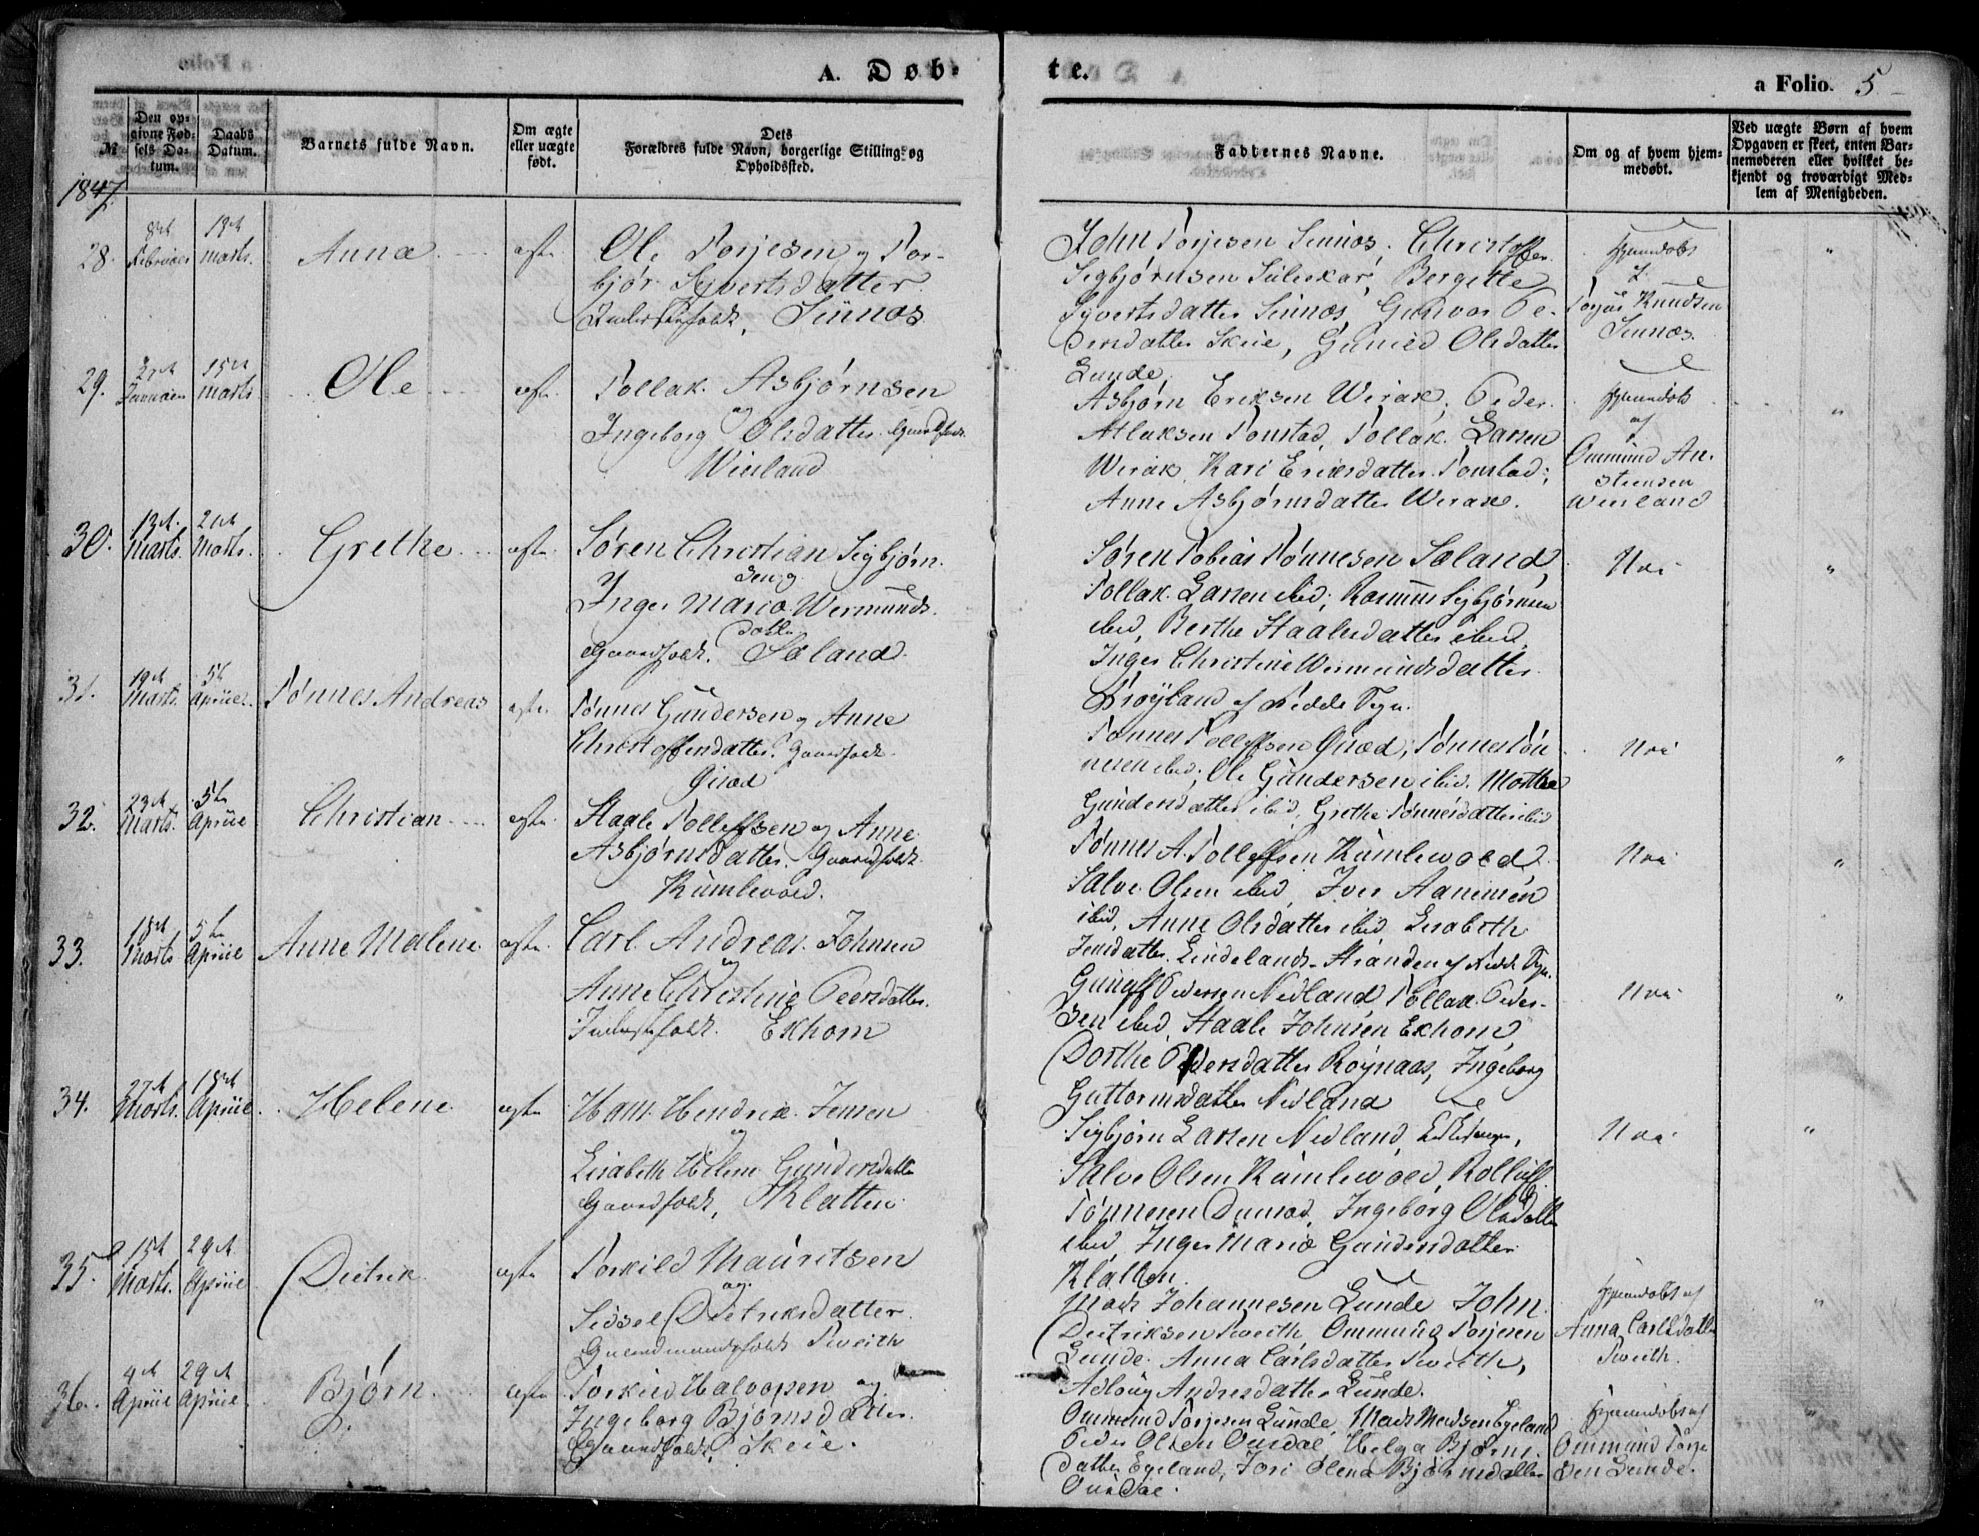 A. Døbte.
a Folio. 5
№
Den op-
givne Fød-
sels Da-
tum.
Daabs
Datum.
Barnets fulde Navn.
Om ægte
eller uægte
født.
Dets
Forældres fulde Navn, borgerlige Stilling og
Opholdssted.
Faddernes Navne.
Om og af hvem hjem-
medøbt.
Ved uægte Børn af hvem
Opgaven er skeet, enten Bar-
nemoderen eller hvilket be-
kjendt og troværdigt Med-
lem af Menigheden.
1847.
28. Februar Marts. Anna ægte
Ole Torjesen og Tor-
bjør Sivertsdatter
Sinnes
John Torjesen Sinnes, Christoffer
Sigbjørnsen Suleskar, Bergitte
Syvertsdatter Sinnes, Gunvor Pe-
dersdatter Skeie, Gunild Olsdatter
Lunde
Hjemmedøbt
Torjus Knudsen
Sinnes.
29. Januar 15de Marts Ole ægte
Tollak Asbjørnsen
og
Ingeborg Olsdatter Gaardfolk
Asbjørn Eriksen Wirak, Peder
Atlaksen Tonstad, Tollak Larsen
Wirak, Kari Eriksdatter Tonstad,
Anne Asbjørnsdatter Wirak.
Hjemmedøbt
af
Ommund
30. 13de Marts. 21de Marts. Grethe ægte
Søren Christian Sigbjørn-
sen og
Inger Maria Wermunds-
datter
Gaardfolk. Sæland
Søren Tobias Tønnesen Sæland,
Tollak Larsen ibid, Rasmus Sigbjørnsen
ibid, Berthe Staalesdatter ibid,
Inger Christine Wermundsdatter
Trøyland af Fedde Sogn.
Nei
31. 19de Marts. 5te Aprile. Tønnes Andreas ægte
Tønnes Gundersen og Anne
Christoffersdatter. Gaardfolk
Tønnes Tollefsen Qviæd, Tønnes Tøn-
nesen ibid, Ole Gundersen ibid. Marthe
Gundersdatter ibid, Grethe Tønnesdatter ibid
Nei
32. 23de Marts. 5te Aprile Christian ægte
Staale Tollefsen og Anne
Asbjørnsdatter. Gaardfolk
Rumlewold.
Tønnes A. Tollefsen Rumlewold
Salve Olsen ibid, Iver
ibid, Anne Olsdatter ibid, Lisabeth
Jensdatter Lindelands-Stranden af Fedde Sogn.
Nei
33. 18de Marts 5te Aprile Anne Malene ægte
Carl Andreas Johnsen
og
Anne Christine Peersdatter.
Inderstfolk. Ekhorn
Gunuf Pedersen Nedland, Tollak Peder-
sen ibid, Staale Johnsen Ekhorn,
Dorthe Pedersdatter Røynaas, Ingeborg
Guttormsdatter Nedland
Nei
34. 27de Marts. 18de Aprile Helene ægte
Hans Hendrik Jensen
og
Lisabeth Helene Gundersdatter
Gaardfolk, Klatten
Sigbjørn Larsen Nedland,
Salve Olsen Rumlewold, Rolluf
Tønnesen Dunsæd, Ingeborg Olsdatter
ibid, Inger Maria Gundersdatter
Klatten.
Nei
35. 15de Marts. 29de Aprile Dietrik ægte
Torkild Mauritsen
og
Sissel Dietriksdatter
Gaardmandsfolk Tveith
Mads Johannesen Lunde John
Dietriksen Tveith, Ommund Torjesen
Lunde. Anna Carlsdatter Tveith,
Adloug Andresdatter Lunde.
Hjemmedøbt af
Anna Carlsdatter
Tveith.
36. 4de Aprile 29de Aprile. Bjørn ægte
Torkild Halvorsen og
Ingeborg Bjørnsdatter.
Gaardfolk, Skeie.
Ommund Torjesen Lunde, Mads Madsen Egeland
Peder Olsen Ousdal, Helga Bjørns-
datter Egeland, Jori Olena Bjørnsdatter
Ousdal.
Hjemmedøbt af
Ommund Torje-
sen Lunde.